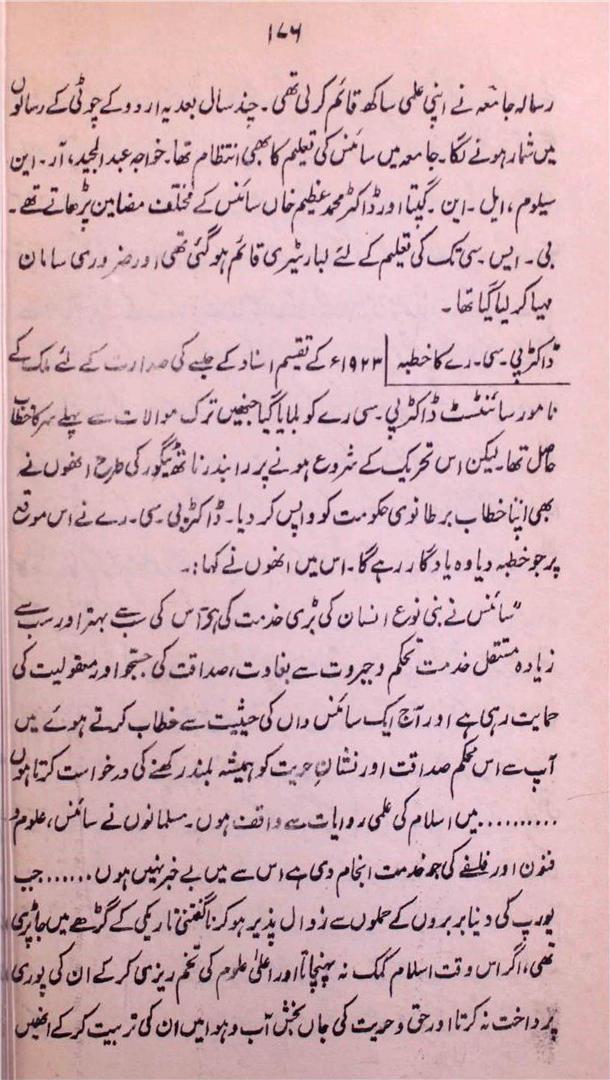 ۱۷۶
رسالہ جامعہ نے اپنی علمی ساکھ قائم کر لی تھی۔ چند سال بعد یہ اردو کے چوٹی کے رسالوں
میں شمار ہونے لگا۔ جامعہ میں سائنس کی تعلیم کا بھی انتظام تھا۔ خواجہ عبدالمجید، آر۔ این
سیلوم، ایل۔ این۔ گپتا اور ڈاکٹر محمد عظیم خاں سائنس کے مختلف مضامین پڑھاتے تھے۔
بی۔ ایس سی تک کی تعلیم کے لئے لبارٹیری قائم ہوگئی تھی اور ضروری سامان
مہیا کر لیا گیا تھا۔
ڈاکٹر پی۔ سی۔ رے کا خطبہ ۱۹۲۳ء کے تقسیم اسناد کے جلسے کی صدارت کے لئے ملک کے
نامور سائنٹسٹ ڈاکٹر پی۔ سی رے کو بلایا گیا جنھیں ترک موالات سے پہلے سر کا خطاب
حاصل تھا۔ لیکن اس تحریک کے شروع ہونے پر رابندر ناتھ ٹیگور کی طرح انھوں نے
بھی اپنا خطاب برطانوی حکومت کو واپس کر دیا۔ ڈاکٹر پی۔ سی۔ رے نے اس موقع
پر جو خطبہ دیا وہ یادگار رہے گا۔ اس میں انھوں نے کہا:۔
"سائنس نے بنی نوع انسان کی بڑی خدمت کی ہے۔ اس کی سب سے بہتر اور سب سے
زیادہ مستقل خدمت تحکم و جبروت سے بغاوت، صداقت کی جستجو اور معقولیت کی
حمایت رہی ہے اور آج ایک سائنس داں کی حیثیت سے خطاب کرتے ہوئے میں
آپ سے اس محکم صداقت اور نشانِ حریت کو ہمیشہ بلند رکھنے کی درخواست کرتا ہوں
.......... میں اسلام کی علمی روایات سے واقف ہوں۔ مسلمانوں نے سائنس، علوم و
فنون اور فلسفے کی جو خدمت انجام دی ہے اس سے میں بے خبر نہیں ہوں ...... جب
یورپ کی دنیا بربروں کے حملوں سے زوال پذیر ہو کر ناگفتنی تاریکی کے گڑھے میں جا پڑی
تھی، اگر اس وقت اسلام کمک نہ پہنچاتا اور اعلیٰ علوم کی تخم ریزی کر کے ان کی پوری
پرداخت نہ کرتا اور حق و حریت کی جاں بخش آب و ہوا میں ان کی تربیت کر کے انھیں